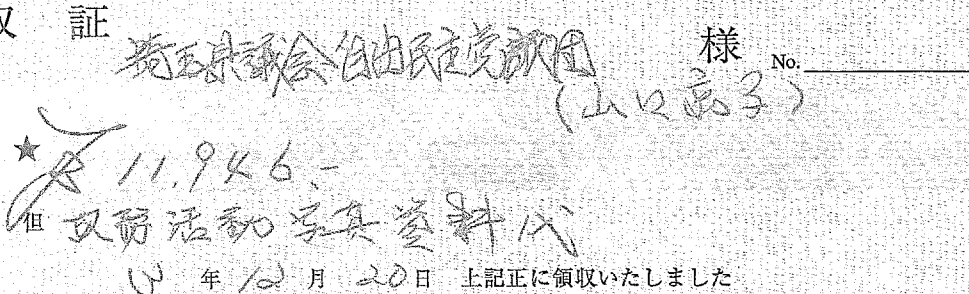 収 証
埼玉県議会自由民主党議員団 様 No.
(山口京子)
★ ¥11,946.-
但 政務活動写真資料代
13年12月20日 上記正に領収いたしました